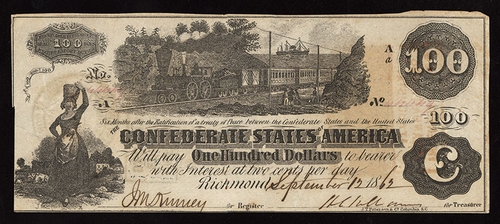 100
No.
A
A
a
100
No
100
Six Months after the Ratification of a treaty of Peace between the Confederate States and the United States
THE
CONFEDERATE STATES OF AMERICA
Will pay One Hundred Dollars to bearer
with Interest at two cents per day
C
Richmond September 12 1862
for Register
for Treasurer